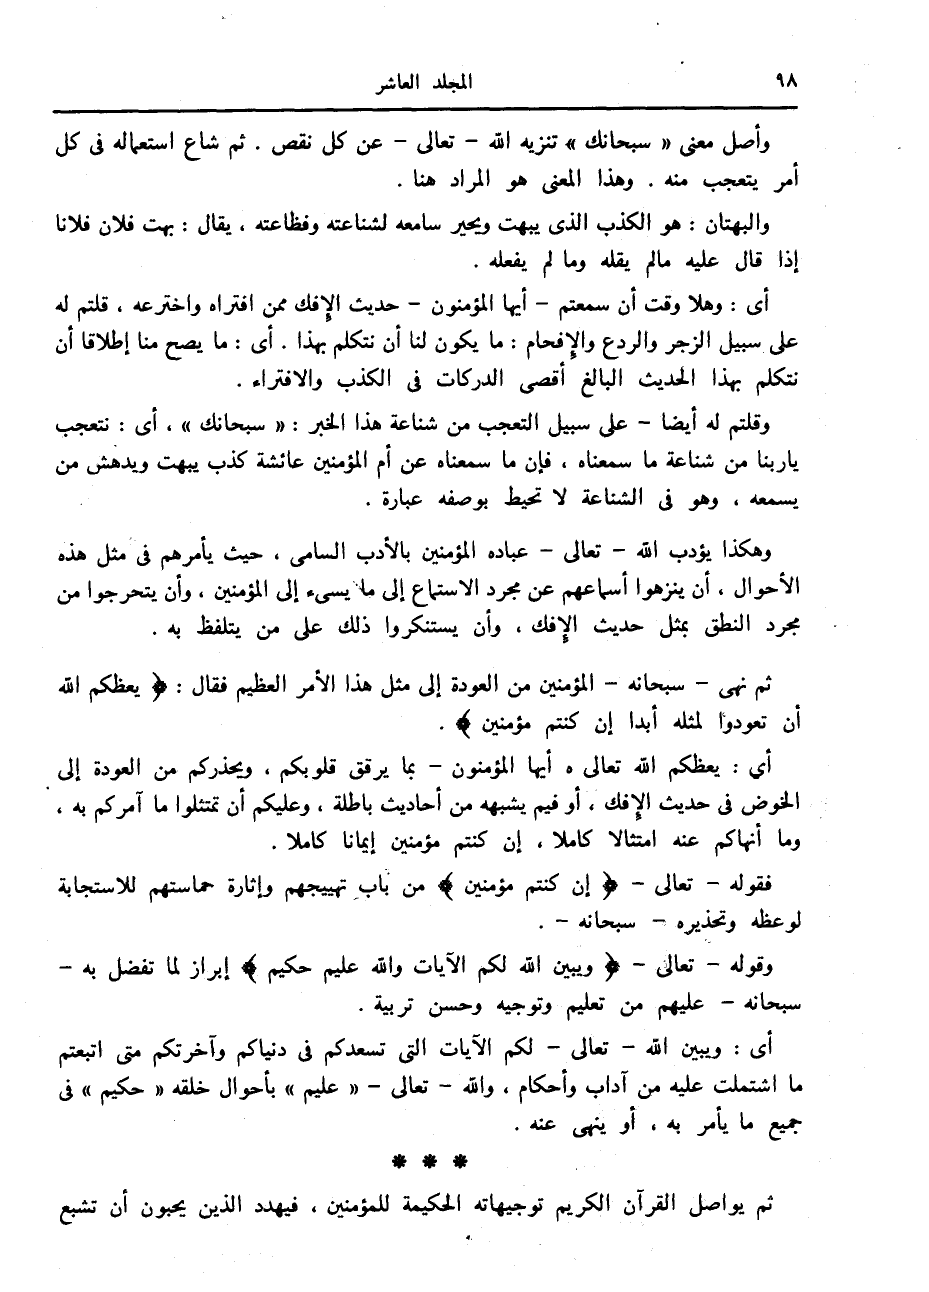 ٩٨
المجلد العاشر
وأصل معنى « سبحانك » تنزيه الله – تعالى – عن كل نقص . ثم شاع استعماله فى كل
أمر يتعجب منه . وهذا المعنى هو المراد هنا .
والبهتان : هو الكذب الذى يبهت ويحير سامعه لشناعته وفظاعته ، يقال : بهت فلان فلانا
إذا قال عليه مالم يقله وما لم يفعله .
أى : وهلا وقت أن سمعتم – أيها المؤمنون – حديث الإفك ممن افتراه واخترعه ، قلتم له
على سبيل الزجر والردع والإفحام : ما يكون لنا أن نتكلم بهذا . أى : ما يصح منا إطلاقا أن
نتكلم بهذا الحديث البالغ أقصى الدركات فى الكذب والافتراء .
وقلتم له أيضا – على سبيل التعجب من شناعة هذا الخبر : « سبحانك » ، أى : نتعجب
ياربنا من شناعة ما سمعناه ، فإن ما سمعناه عن أم المؤمنين عائشة كذب يبهت ويدهش من
يسمعه ، وهو فى الشناعة لا تحيط بوصفه عبارة .
وهكذا يؤدب الله – تعالى – عباده المؤمنين بالأدب السامى ، حيث يأمرهم فى مثل هذه
الأحوال ، أن ينزهوا أسماعهم عن مجرد الاستماع إلى ما يسىء إلى المؤمنين ، وأن يتحرجوا من
مجرد النطق بمثل حديث الإفك ، وأن يستنكروا ذلك على من يتلفظ به .
ثم نهى – سبحانه – المؤمنين من العودة إلى مثل هذا الأمر العظيم فقال : ﴿ يعظكم الله
أن تعودوا لمثله أبدا إن كنتم مؤمنين ﴾ .
أي : يعظكم الله تعالى ه أيها المؤمنون – بما يرقق قلوبكم ، ويحذركم من العودة إلى
الخوض فى حديث الإفك ، أو فيم يشبهه من أحاديث باطلة ، وعليكم أن تمتثلوا ما آمركم به ،
وما أنهاكم عنه امتثالا كاملا ، إن كنتم مؤمنين إيمانا كاملا .
فقوله – تعالى – ﴿ إن كنتم مؤمنين ﴾ من باب تهييجهم وإثارة حماستهم للاستجابة
لوعظه وتحذيره – سبحانه – .
وقوله – تعالى – ﴿ ويبين الله لكم الآيات والله عليم حكيم ﴾ إبراز لما تفضل به –
سبحانه – عليهم من تعليم وتوجيه وحسن تربية .
أى : ويبين الله – تعالى – لكم الآيات التى تسعدكم فى دنياكم وآخرتكم متى اتبعتم
ما اشتملت عليه من آداب وأحكام ، والله – تعالى – « عليم » بأحوال خلقه « حكيم » فى
جميع ما يأمر به ، أو ينهى عنه .
* * *
ثم يواصل القرآن الكريم توجيهاته الحكيمة للمؤمنين ، فيهدد الذين يحبون أن تشبع